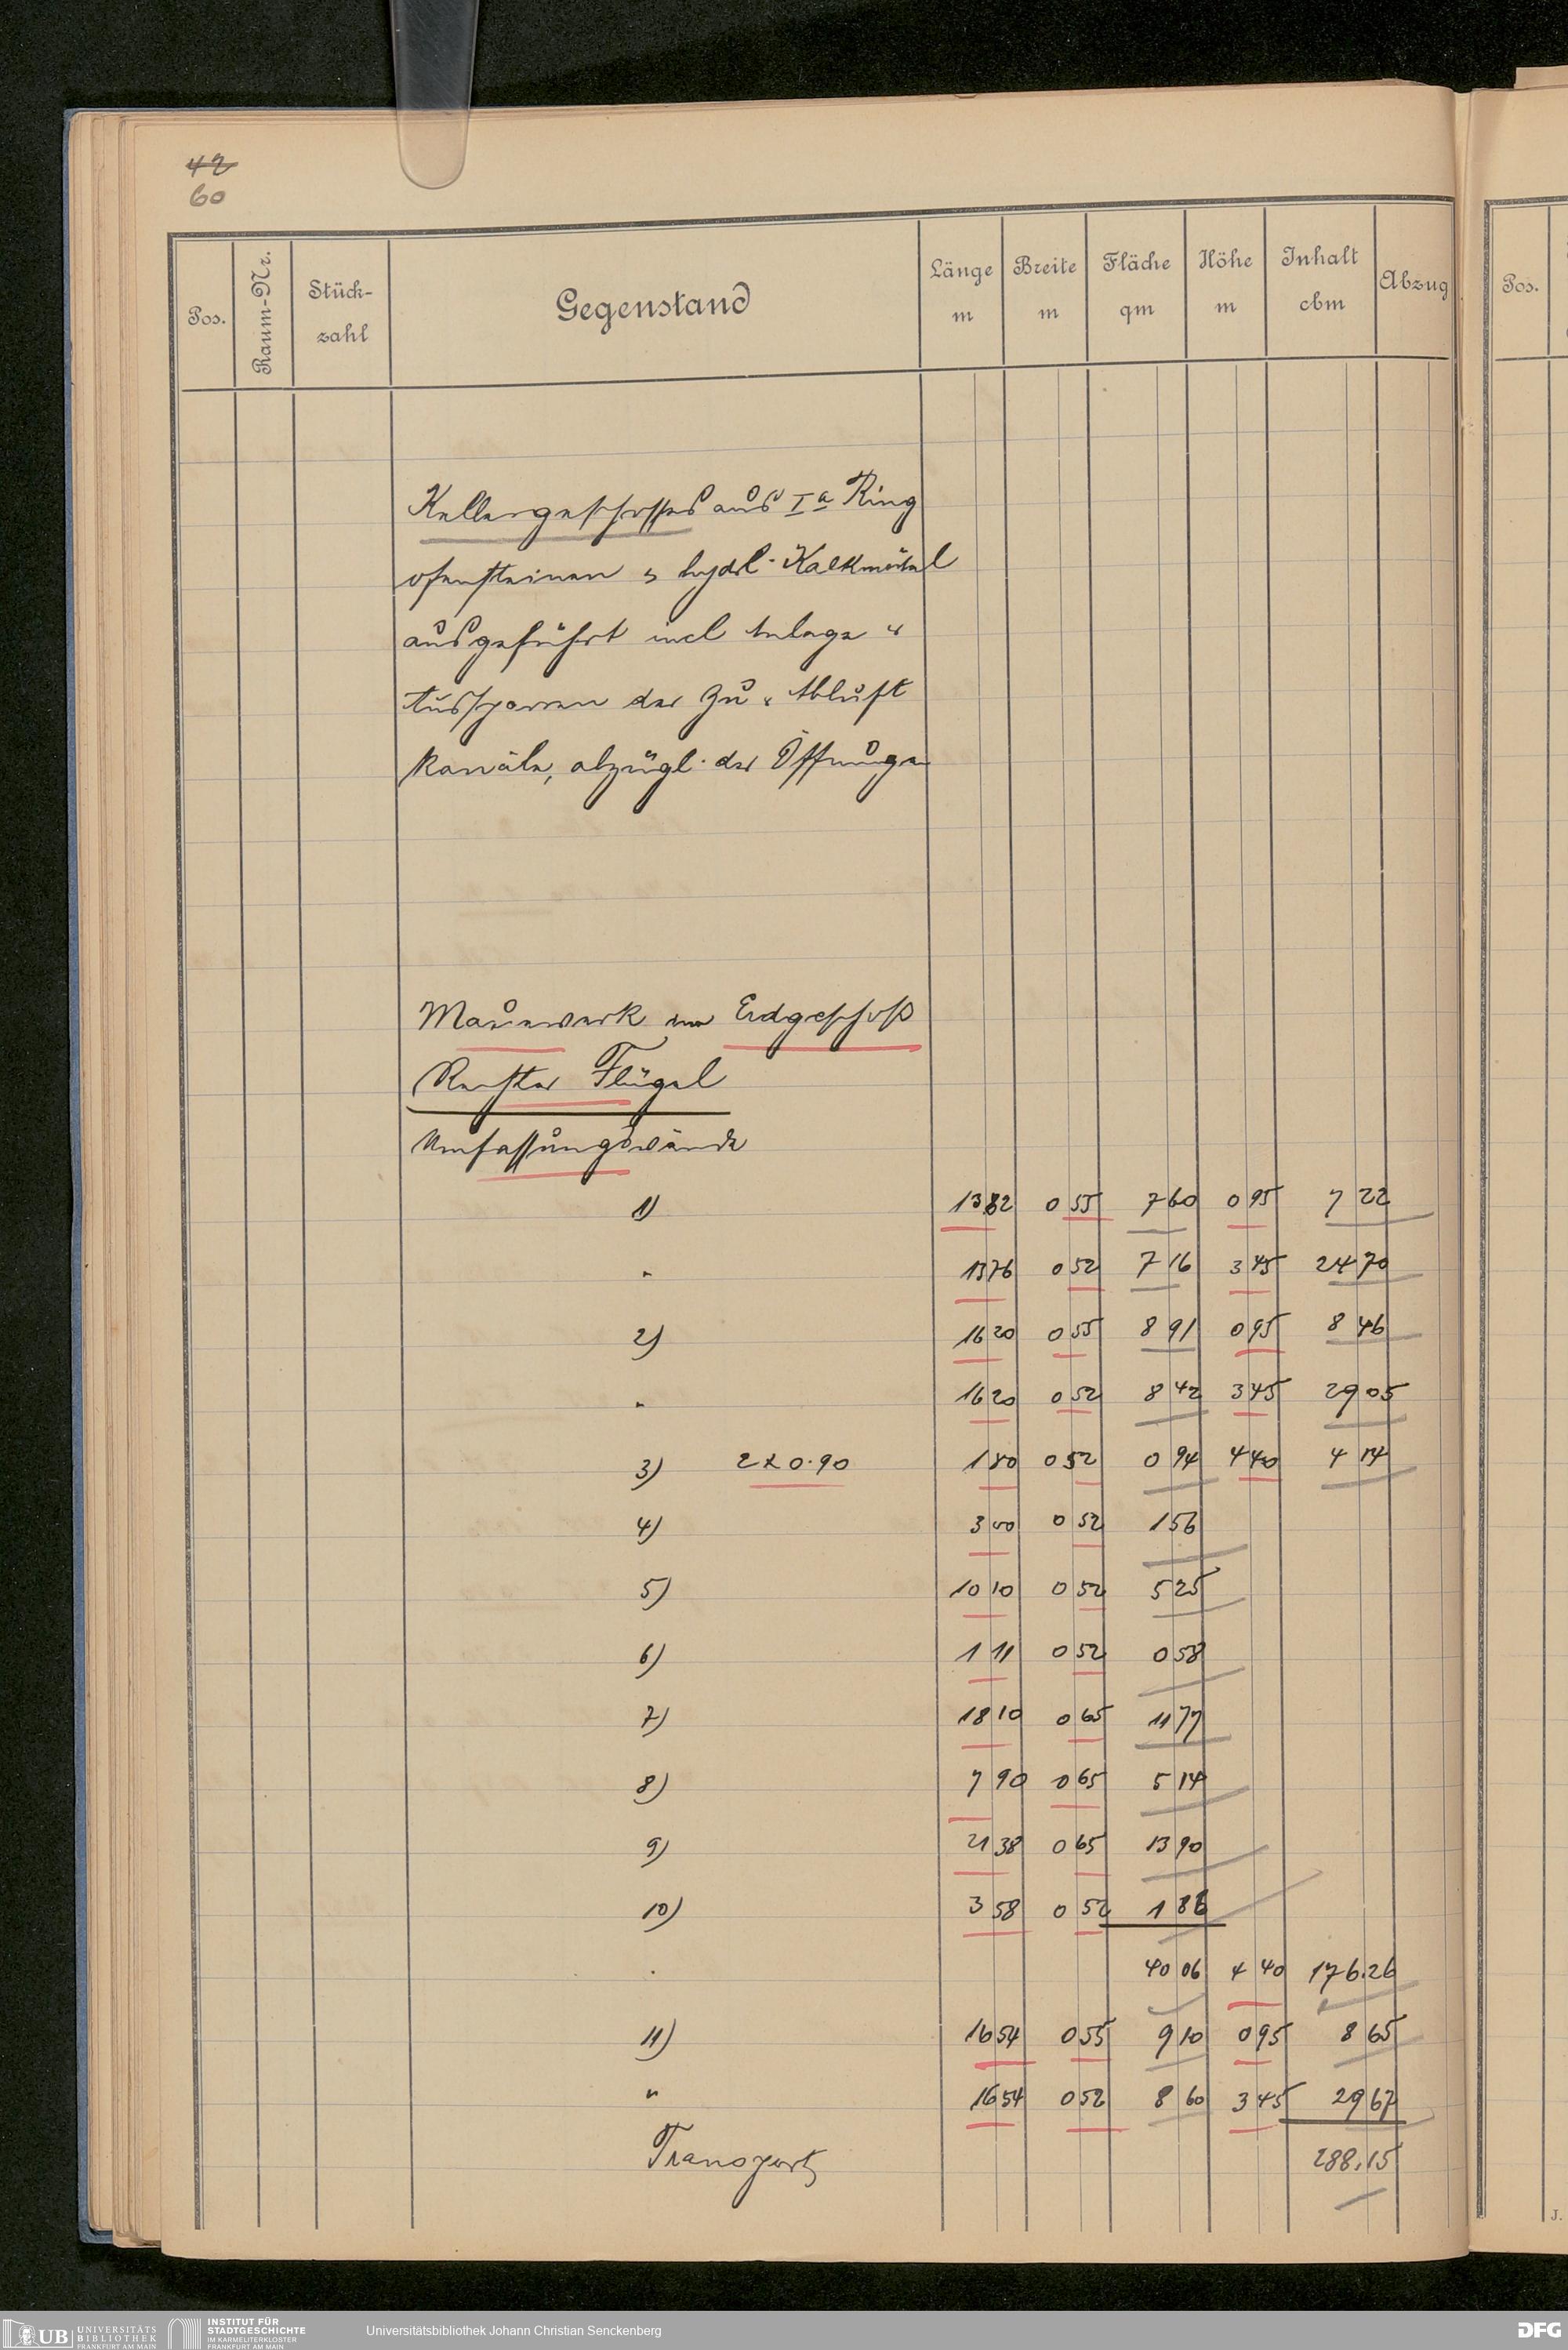 42
60
Pos. Raum-Nr. Stück-zahl Gegenstand Länge m Breite m Fläche qm Höhe m Inhalt cbm Abzug Pos.
Kellergeschosses aus Ia Ring
ofensteinen u hydrl. Kalkmörtel
ausgeführt incl Anlage u
Aussparen der Zu u Abluft
kanäle, abzügl. der Öffnungen
Mauerwerk im Erdgeschoß
Rechter Flügel
Umfassungswände
1) 13 82 0 55 7 60 0 95 7 22
" 13 76 0 52 7 16 3 45 24 70
2) 16 20 0 55 8 91 0 95 8 46
" 16 20 0 52 8 42 3 45 29 05
3) 2 x 0.90 1 80 0 52 0 94 4 40 4 14
4) 3 00 0 52 1 56
5) 10 10 0 52 5 25
6) 1 11 0 52 0 58
7) 18 10 0 65 11 77
8) 7 90 0 65 5 14
9) 21 38 0 65 13 90
10) 3 58 0 52 1 86
40 06 4 40 176.26
11) 16 54 0 55 9 10 0 95 8 65
" 16 54 0 52 8 60 3 45 29 67
Transport 288.15
J.
UB UNIVERSITÄTS BIBLIOTHEK FRANKFURT AM MAIN
INSTITUT FÜR STADTGESCHICHTE IM KARMELITERKLOSTER FRANKFURT AM MAIN
Universitätsbibliothek Johann Christian Senckenberg
DFG